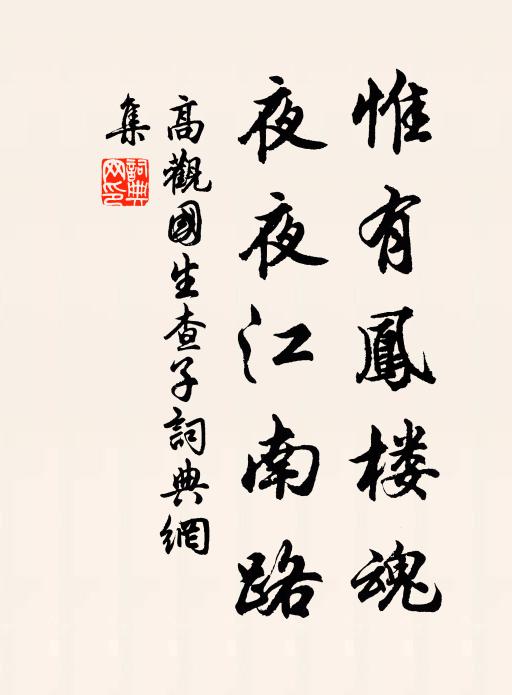 惟有鳳楼魂
夜夜江南路
高觀國生查子詞典網
集
詞典網印